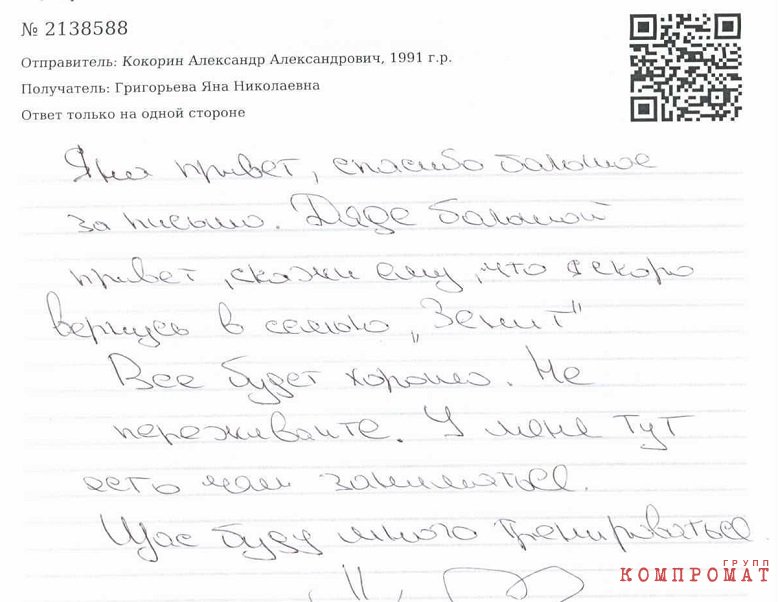 № 2138588
Отправитель: Кокорин Александр Александрович, 1991 г.р.
Получатель: Григорьева Яна Николаевна
Ответ только на одной стороне
Яна привет, спасибо большое
за письмо. Дяде большой
привет, скажи ему, что я скоро
вернусь в семью „Зенит"
Все будет хорошо. Не
переживайте. У меня тут
есть чем заниматься.
Щас буду много тренироваться
ГРУПП
КОМПРОМАТ